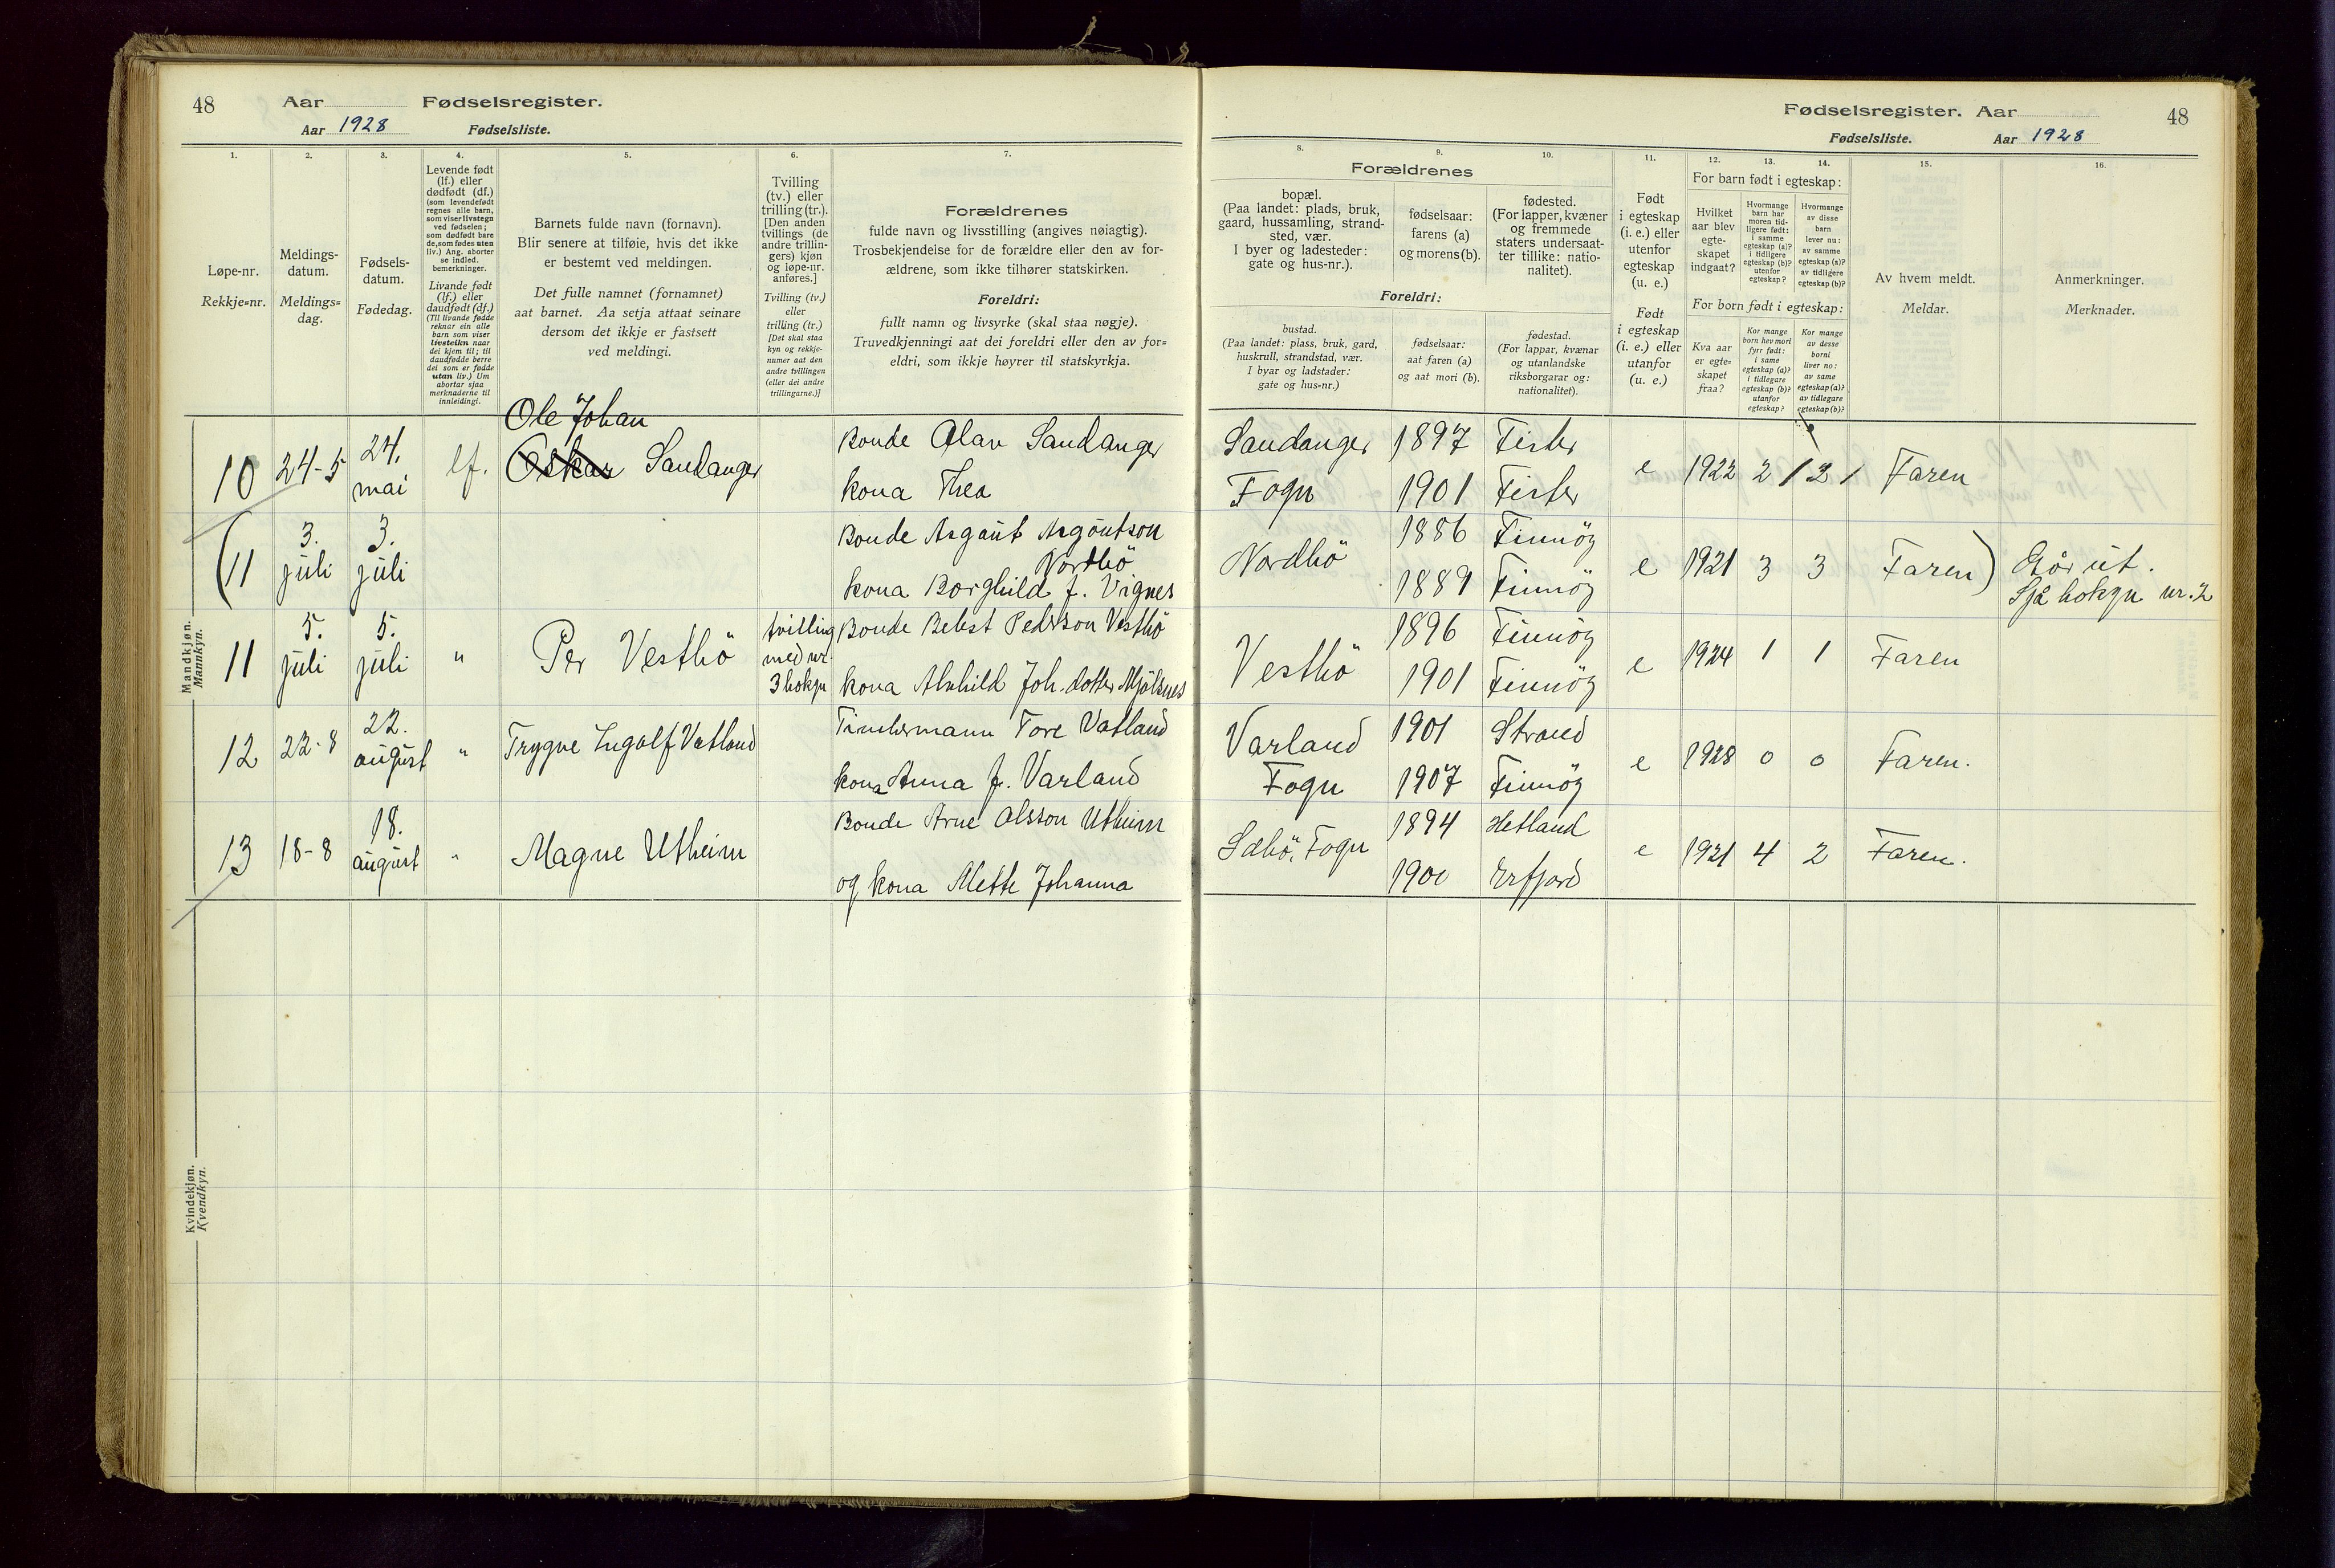 48 Aar Fødselsregister.
Aar 1928 Fødselsliste.
1. 2. 3. 4. 5. 6. 7.
Løpe-nr.
Rekkje=nr.
Meldings-
datum.
Meldings=
dag.
Fødsels-
datum.
Fødedag.
Levende født
(lf.) eller
dødfødt (df.)
(som levendefødt
regnes alle barn,
som viser livstegn
ved fødselen;
som dødfødt bare
de, som fødes uten
liv.) Ang. aborter
se indled.
bemerkninger.
Livande født
(lf.) eller
daudfødt (df.)
(Til livande fødde
reknar ein alle
barn som viser
livsteikn naar
dei kjem til; til
daudfødde berre
dei som er fødde
utan liv.) Um
abortar sjaa
merknaderne til
innleidingi.
Barnets fulde navn (fornavn).
Blir senere at tilføie, hvis det ikke
er bestemt ved meldingen.
Det fulle namnet (fornamnet)
aat barnet. Aa setja attaat seinare
dersom det ikkje er fastsett
ved meldingi.
Tvilling
(tv.) eller
trilling (tr.).
[Den anden
tvillings (de
andre trillin-
gers) kjøn
og løpe-nr.
anføres.]
Tvilling (tv.)
eller
trilling (tr.)
[Det skal staa
kyn og rekkje-
numer aat den
andre tvillingen
(eller dei andre
trillingarne.)]
Forældrenes
fulde navn og livsstilling (angives nøiagtig).
Trosbekjendelse for de forældre eller den av for-
ældrene, som ikke tilhører statskirken.
Foreldri:
fullt namn og livsyrke (skal staa nøgje).
Truvedkjenningi aat dei foreldri eller den av for=
eldri, som ikkje høyrer til statskyrkja.
Mandkjøn.
Mannkyn.
Ole Johan
10 24-5 24. mai lf. Oskar Sandanger
Bonde Olav Sandanger
kona Thea
(11 3. juli 3. juli
Bonde Asgaut Asgautson
Nordbö
kona Borghild f. Vignes
11 5. juli 5. juli " Per Vestbö
tvilling
med nr.
3 hokyn
Bonde Pederson Vestbö
kona Alvhild Joh.dotter Mjölsnes
12 22-8 22. august " Trygve Ingolf Vatland
Timbermann Tore Vatland
kona Anna f. Varland
13 18-8 18. august " Magne Utheim
Bonde Arne Olsson Utheim
og kona Mette Johanna
Kvindekjøn.
Kvendkyn.
Fødselsregister. Aar 48
Fødselsliste. Aar 1928
8. 9. 10. 11. 12. 13. 14. 15. 16.
Forældrenes
bopæl.
(Paa landet: plads, bruk,
gaard, hussamling, strand-
sted, vær.
I byer og ladesteder:
gate og hus-nr.).
fødselsaar:
farens (a)
og morens (b).
fødested.
(For lapper, kvæner
og fremmede
staters undersaat-
ter tillike: natio-
nalitet).
Foreldri:
bustad.
(Paa landet: plass, bruk, gard,
huskrull, strandstad, vær.
I byar og ladstader:
gate og hus=nr.)
fødselsaar:
aat faren (a)
og aat mori (b).
fødestad.
(For lappar, kvænar
og utanlandske
riksborgarar og:
nationalitet).
Født
i egteskap
(i. e.) eller
utenfor
egteskap
(u. e.)
Født
i egteskap
(i. e.) eller
utanfor
(u. e.)
For barn født i egteskap:
Hvilket
aar blev
egte-
skapet
indgaat?
Hvormange
barn har
moren tid-
ligere født:
i samme
egteskap (a)?
i tidligere
egteskap (b)?
utenfor
egteskap?
Hvormange
av disse
barn
lever nu:
av samme
egteskap (a)?
av tidligere
egteskap (b)?
For born født i egteskap:
Kva aar
er egte=
skapet
fraa?
Kor mange
born hev mori
fyrr født:
i same
egteskap (a)?
i tidlegare
egteskap (b)?
utanfor
egteskap?
Kor mange
av desse
borni
liver no:
av same
egteskap (a)?
av tidlegare
egteskap (b)?
Av hvem meldt.
Meldar.
Anmerkninger.
Merknader.
Sandanger 1897 Fister
Fogn 1901 Fister
e 1922 2 1 2 1 Faren
Nordbö 1886 Finnöy
1889 Finnöy
e 1921 3 3 Faren) Går ut.
Sjå hokyn nr. 2
Vestbö 1896 Finnöy
1901 Finnöy
e 1924 1 1 Faren
Varland 1901 Strand
Fogn 1907 Finnöy
e 1928 0 0 Faren.
Sæbö, Fogn 1894 Hetland
1900 Erfjord
e 1921 4 2 Faren.